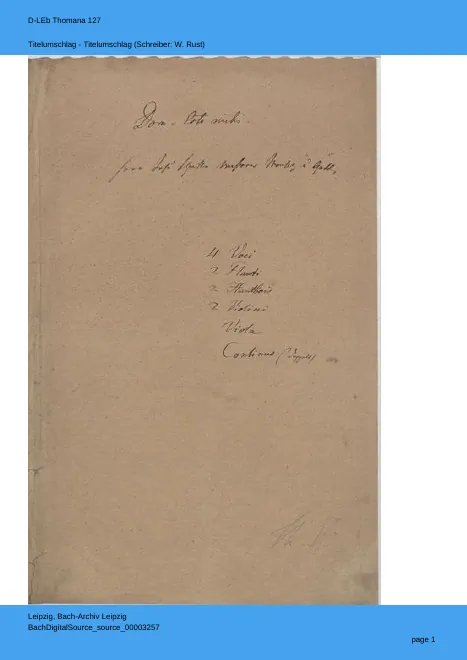 D-LEb Thomana 127
Titelumschlag - Titelumschlag (Schreiber: W. Rust)
Dom. Esto mihi.
Herr Jesu Christ wahrer Mensch u Gott,
4 Voci
2 Flauti
2 Hautbois
2 Violini
Viola
Continuo
Leipzig, Bach-Archiv Leipzig
BachDigitalSource_source_00003257
page 1